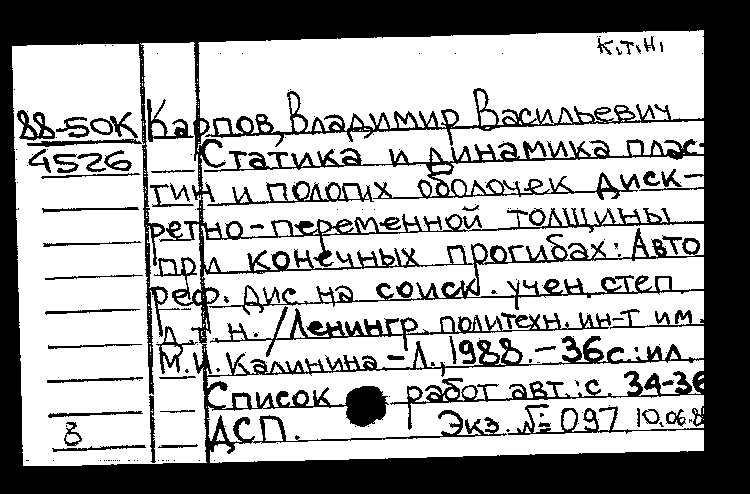 К.Т.Н.
88-50К Карпов, Владимир Васильевич
4526 Статика и динамика плас-
тин и пологих оболочек диск-
ретно-переменной толщины
при конечных прогибах: Авто
реф. дис. на соиск. учен. степ
д.т.н. / Ленингр. политехн. ин-т им.
М.И. Калинина. - Л., 1988. - 36 с.: ил.
Список работ авт.: с. 34-36
8 ДСП. Экз. № 097 10.06.88